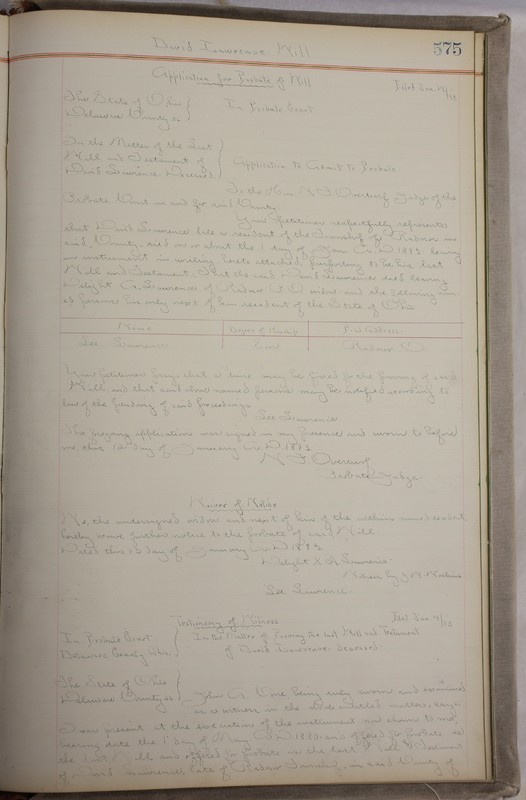 David Lawrence Will
575
Application for Probate of Will
Filed Jan.
The State of Ohio
Delaware County ss
In Probate Court
In the Matter of the Last
Will and Testament of
David Lawrence Deceased
Application to Admit to Probate
To the Hon. N F Overturf Judge of the
Probate Court in and for said County
Your Petitioner respectfully represents
that David Lawrence late a resident of the Township of Radnor in
said County, died on or about the 1 day of Jan A.D. 1893 leaving
an instrument in writing, hereto attached, purporting to be his last
Will and Testament; That the said David Lawrence died leaving
Delight A. Lawrence of Radnor O widow and the following
persons his only next of kin resident of the State of Ohio
Name
Degree of Kinship
P.O. Address
Lee Lawrence
Son
Radnor O.
Your Petitioner prays that a time may be fixed for the proving of said
Will and that said above named persons may be notified according to
law of the pendency of said proceedings.
Lee Lawrence
The foregoing application was signed in my presence and sworn to before
me, this day of January A.D. 1893
N. F. Overturf
Probate Judge.
Waiver of Notice
We, the undersigned widow and next of kin of the within named decedent
hereby waive further notice to the probate of said Will
Dated this day of January A.D. 1893
Delight X A Lawrence
Lee Lawrence
Testimony of Witness
Filed Jan.
In Probate Court
Delaware County, Ohio
In the Matter of Proving the Last Will and Testament
of David Lawrence deceased
The State of Ohio
Delaware County, ss
John A. being duly sworn and examined
as a witness in the above entitled matter, says
I was present at the execution of the instrument now shown to me,
bearing date the 1 day of May A.D. 1880 and offered for Probate as
the Last Will and offered for Probate as the last Will & Testament
of David Lawrence late of Radnor Township, in said County of